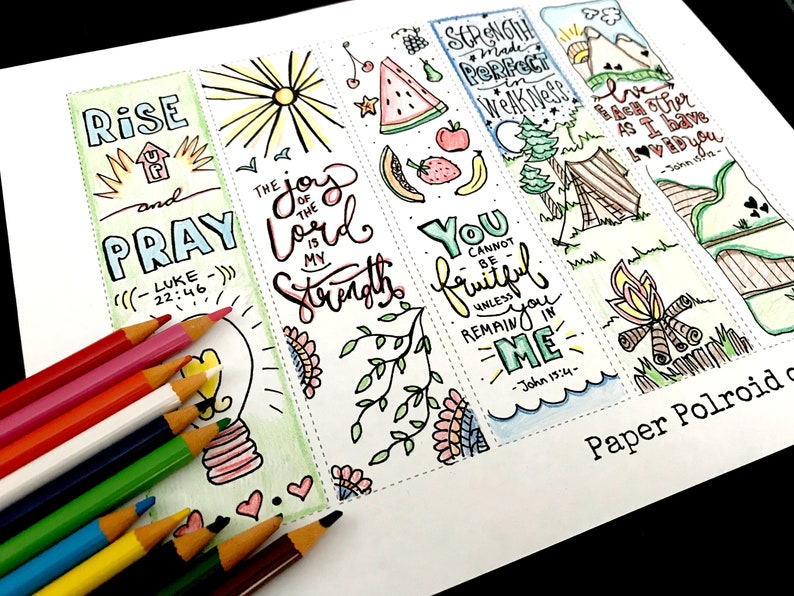 RiSE
UP
and
PRAY
- LUKE
22:46 -
THE joy
OF THE
Lord
IS MY
Strength
YOU
CANNOT
BE
fruitful
UNLESS
you
REMAIN IN
ME
- John 15:4 -
STRENGTH
made
PERFECT
in
WEAKNESS
love
EACH other
AS I have
LOVED you
John 15:12
Paper Polroid